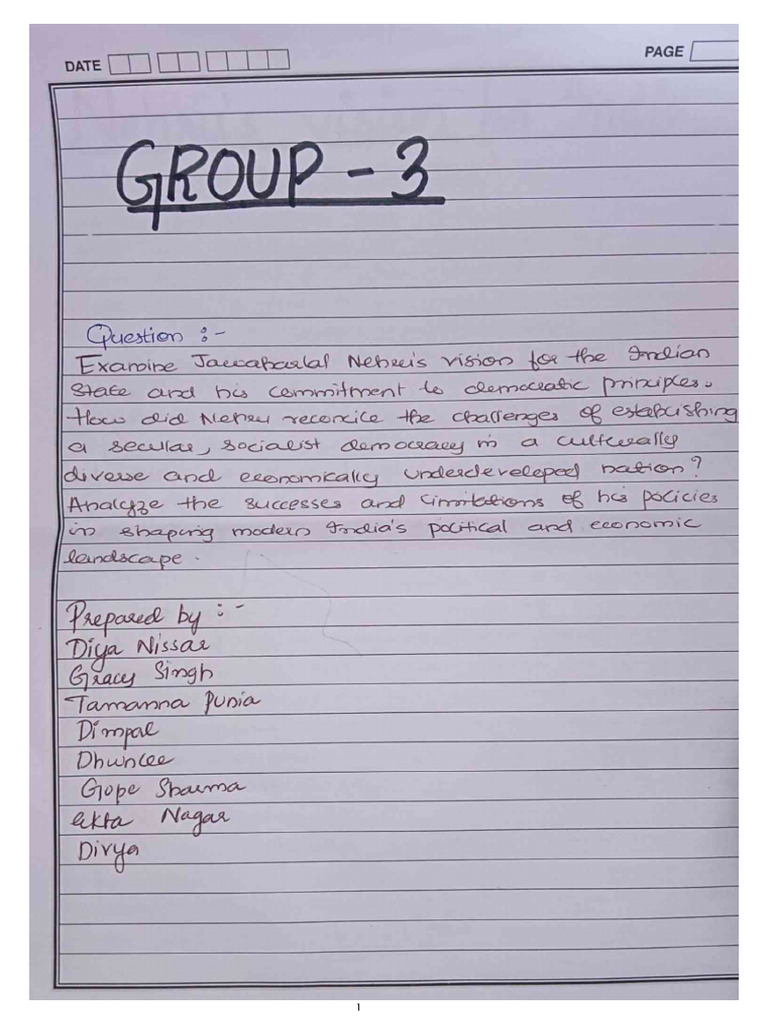 DATE
PAGE
GROUP - 3
Question :-
Examine Jawaharlal Nehru's vision for the Indian
State and his commitment to democratic principles.
How did Nehru reconcile the challenges of establishing
a secular, socialist democracy in a culturally
diverse and economically underdeveloped nation?
Analyze the successes and limitations of his policies
in shaping modern India's political and economic
landscape.
Prepared by :-
Diya Nissar
Gracy Singh
Tamanna Punia
Dimpal
Dhunlee
Gope Sharma
Ekta Nagar
Divya
1